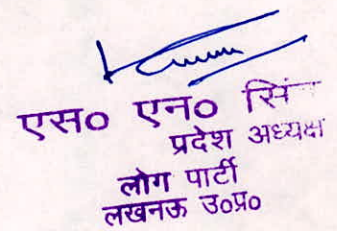 एस० एन० सिं
प्रदेश अध्यक्ष
लोग पार्टी
लखनऊ उ०प्र०